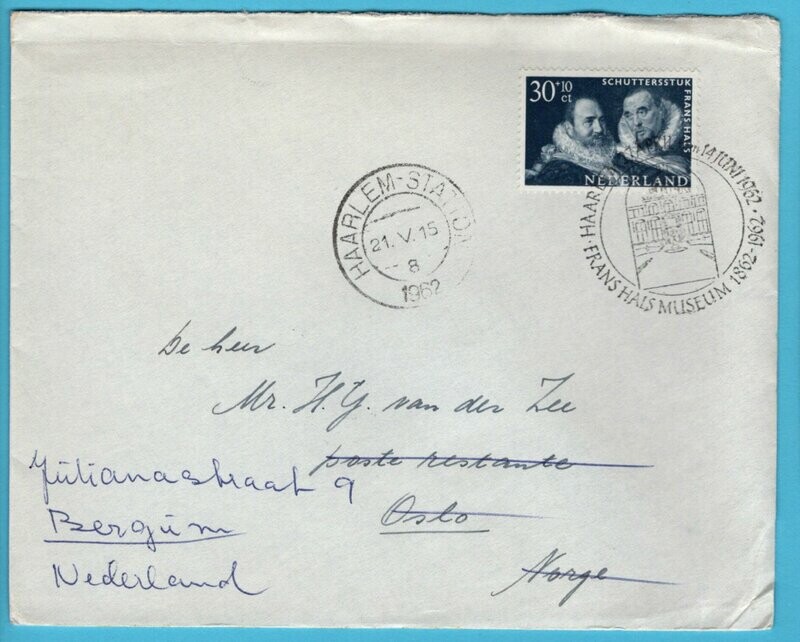 30+10 ct
SCHUTTERSSTUK
FRANS HALS
NEDERLAND
HAARLEM-STATION
21.V.15
8
1962
HAAR 14 JUNI 1962
FRANS HALS MUSEUM 1862-1962
De heer
Mr. H.G. van der Zee
poste restante
Oslo
Norge
Julianastraat 9
Bergum
Nederland